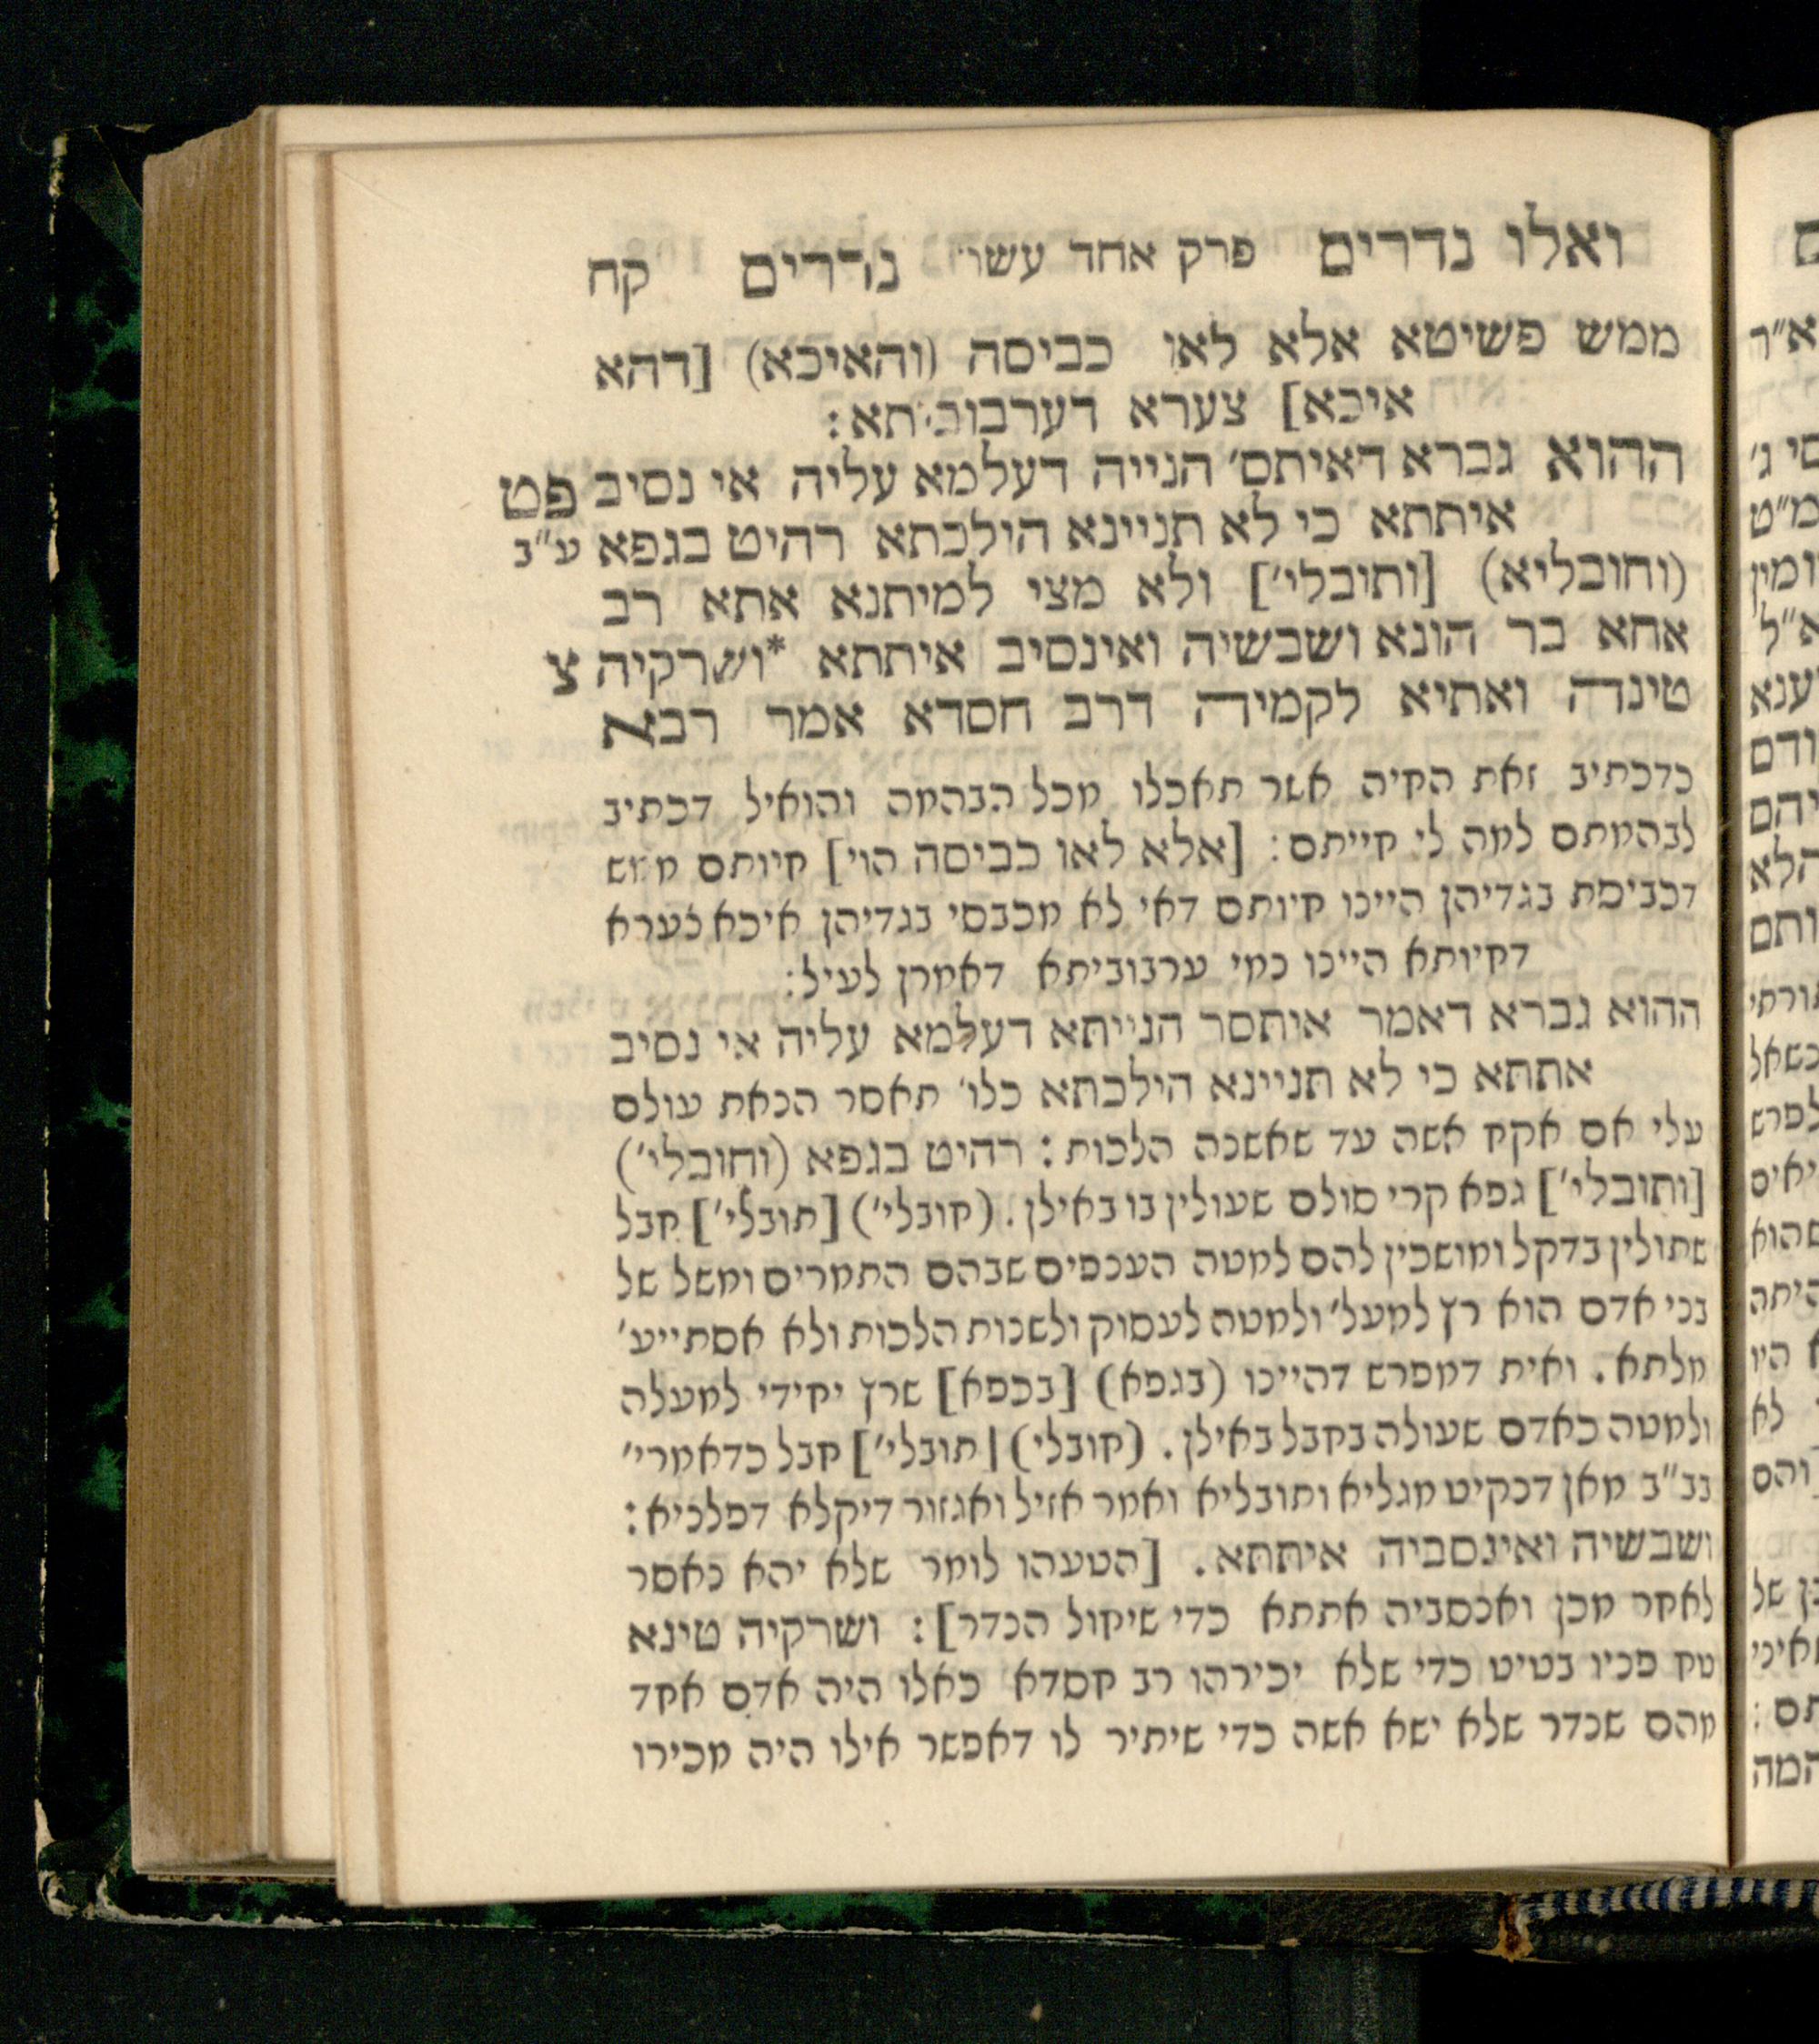 ואלו נדרים פרק אחד עשר נדרים קח
ממש פשיטא אלא לאו כביסה (והאיכא) [דהא
איכא] צערא דערבוביתא:
ההוא גברא דאיתס׳ הנייה דעלמא עליה אי נסיב פט
איתתא כי לא תניינא הילכתא רהיט בגפא ע״ב
(וחובליא) [ותובלי׳] ולא מצי למיתנא אתא רב
אחא בר הונא ושבשיה ואינסיב איתתא *ושרקיה צ
טינה ואתיא לקמיה דרב חסדא אמר רבא
כדכתיב זאת החיה אשר תאכלו מכל הבהמה והואיל דכתיב
לבהמתם למה לי חייתם: [אלא לאו כביסה הוי] חיותם ממש
דכביסת בגדיהן היינו חיותם דאי לא מכבסי בגדיהן איכא צערא
דחיותא היינו כמי ערבוביתא דאמרן לעיל:
ההוא גברא דאמר אותסר הנייתא דעלמא עליה אי נסיב
אתתא כי לא תניינא הילכתא כלו׳ תאסר הנאת עולם
עלי אם אקח אשה עד שאשנה הלכות: רהיט בגפא (וחובלי׳)
[ותובלי׳] גפא קרי סולם שעולין בו באילן. (חובלי׳) [תובלי׳] חבל
שתולין בדקל ומושכין להם למטה הענפים שבהם התמרים ומשל של
בני אדם הוא רץ למעל׳ ולמטה לעסוק ולשנות הלכות ולא אסתייע׳
מלתא. ואית דמפרש דהיינו (בגפא) [בכפא] שרץ יחידי למעלה
ולמטה כאדם שעולה בחבל באילן. (חובלי) [תובלי׳] חבל כדאמרי׳
בב״ב מאן דנקיט מגליא ותובליא ואמר אזיל ואגזור דיקלא דפלניא:
ושבשיה ואינסביה איתתא. [הטעהו לומר שלא יהא נאסר
לאחר מכן ואנסביה אתתא כדי שיקול הנדר]: ושרקיה טינא
טח פניו בטיט כדי שלא יכירהו רב חסדא כאלו היה אדם אחד
מהם שנדר שלא ישא אשה כדי שיתיר לו דאפשר אילו היה מכירו